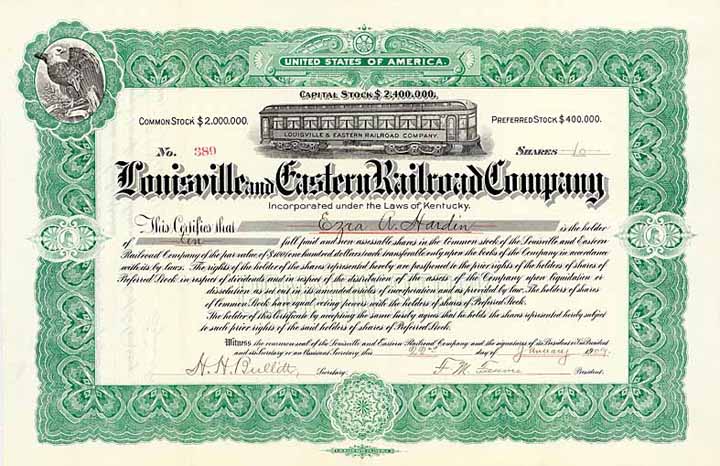 UNITED STATES OF AMERICA.
CAPITAL STOCK $ 2,400,000.
COMMON STOCK $ 2,000,000.
PREFERRED STOCK $ 400,000.
LOUISVILLE & EASTERN RAILROAD COMPANY
No. 389
SHARES 10
Louisville and Eastern Railroad Company
Incorporated under the Laws of Kentucky.
This Certifies that Ezra A. Hardin is the holder
of full paid and non assessable shares in the Common stock of the Louisville and Eastern
Railroad Company of the par value of $100 (one hundred dollars) each transferable only upon the books of the Company in accordance
with its by laws. The rights of the holder of the shares represented hereby are postponed to the prior rights of the holders of shares of
Preferred Stock in respect of dividends and in respect of the distribution of the assets of the Company upon liquidation or
dissolution as set out in its amended articles of incorporation and as provided by law. The holders of shares
of Common Stock have equal voting powers with the holders of shares of Preferred Stock.
The holder of this Certificate by accepting the same hereby agrees that he holds the shares represented hereby subject
to such prior rights of the said holders of shares of Preferred Stock.
Witness the common seal of the Louisville and Eastern Railroad Company and the signatures of its President or Vice President
and its Secretary or an Assistant Secretary this 22nd day of January 190
H. H. Bullitt Secretary. F. M. President.